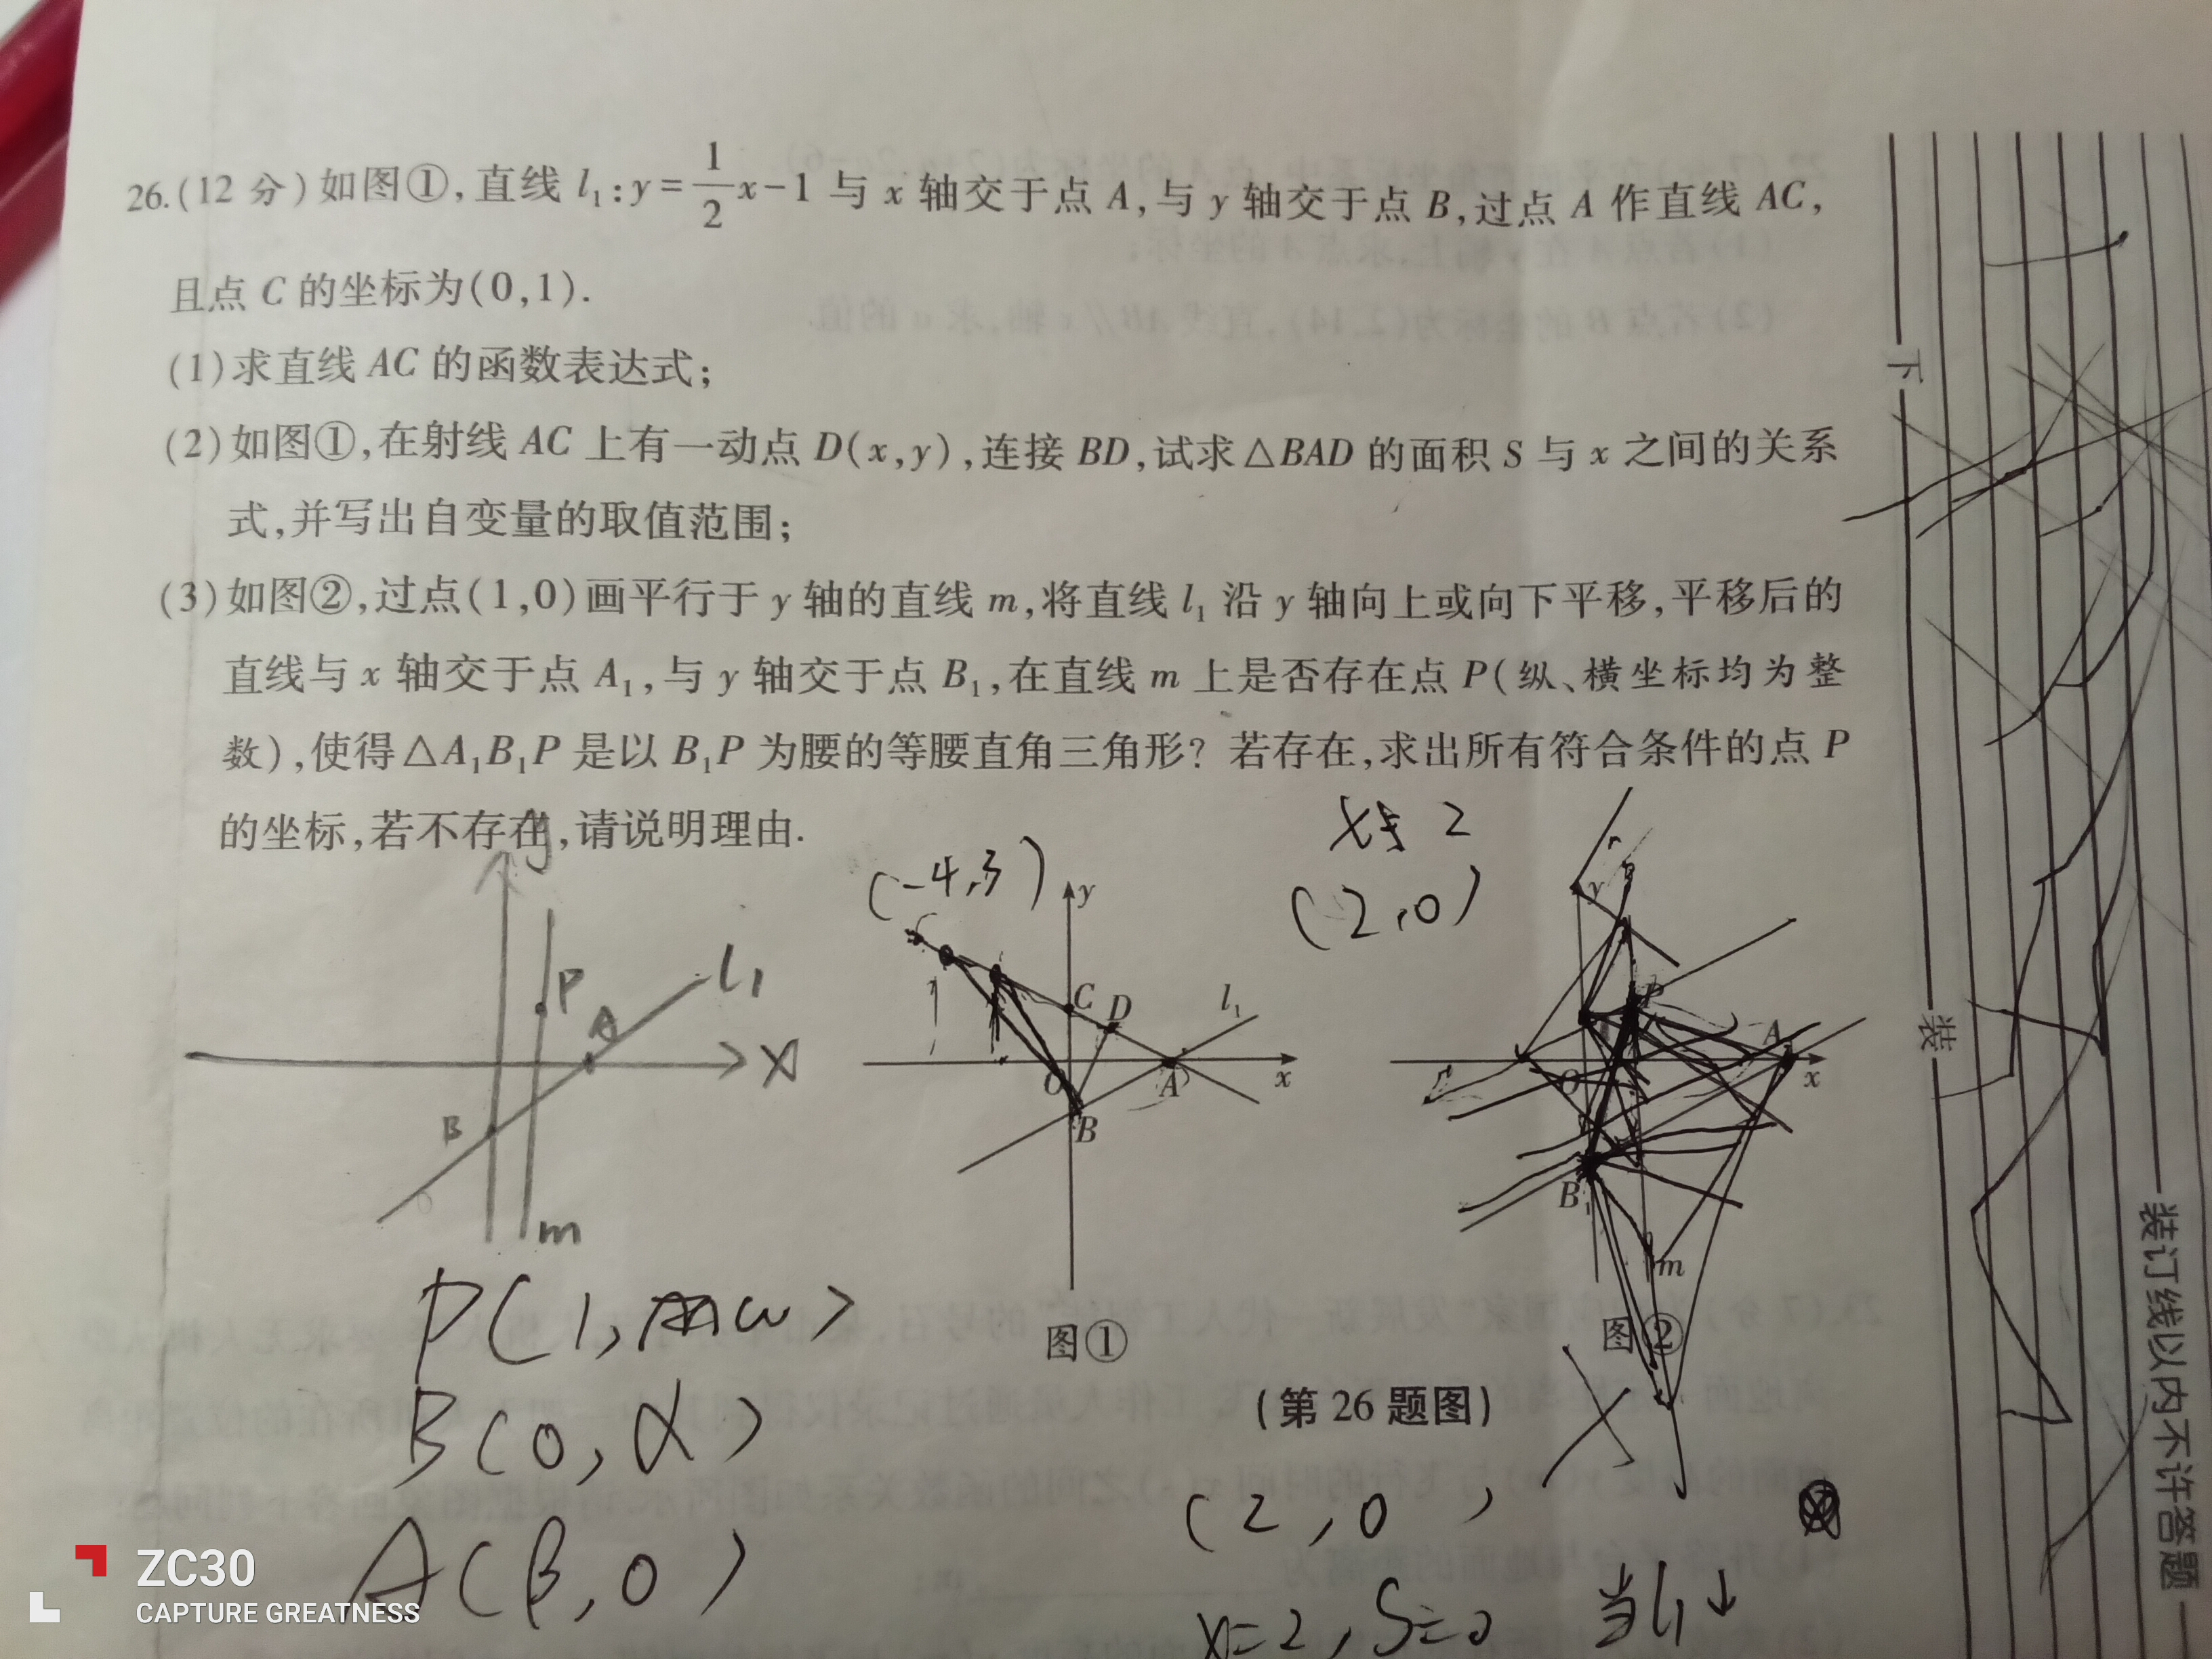 26.(12 分)如图①,直线 l₁:y=1/2x-1 与 x 轴交于点 A,与 y 轴交于点 B,过点 A 作直线 AC,
且点 C 的坐标为(0,1).
(1)求直线 AC 的函数表达式;
(2)如图①,在射线 AC 上有一动点 D(x,y),连接 BD,试求△BAD 的面积 S 与 x 之间的关系
式,并写出自变量的取值范围;
(3)如图②,过点(1,0)画平行于 y 轴的直线 m,将直线 l₁ 沿 y 轴向上或向下平移,平移后的
直线与 x 轴交于点 A₁,与 y 轴交于点 B₁,在直线 m 上是否存在点 P(纵、横坐标均为整
数),使得△A₁B₁P 是以 B₁P 为腰的等腰直角三角形?若存在,求出所有符合条件的点 P
的坐标,若不存在,请说明理由.
y
P
l₁
A
X
B
m
(-4,3)
y
C
D
l₁
O
A
x
B
2
(2,0)
y
P
A
O
x
B₁
m
图①
图②
(第 26 题图)
P(1,
B(0,α)
A(β,0)
(2,0)
x=2,S=0
当l₁↓
下
装
装订线以内不许答题
ZC30
CAPTURE GREATNESS